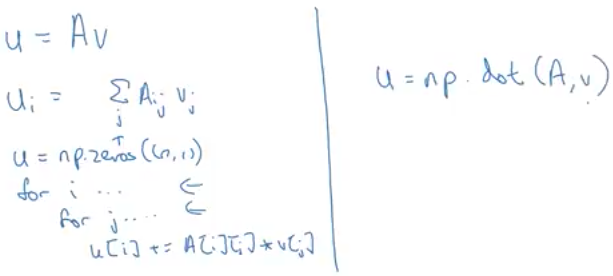 u = Av
uᵢ = Σⱼ Aᵢⱼ vⱼ
u = np.zeros((n,1))
for i ... ←
for j.... ←
u[i] += A[i][j] * v[j]
u = np.dot(A,v)